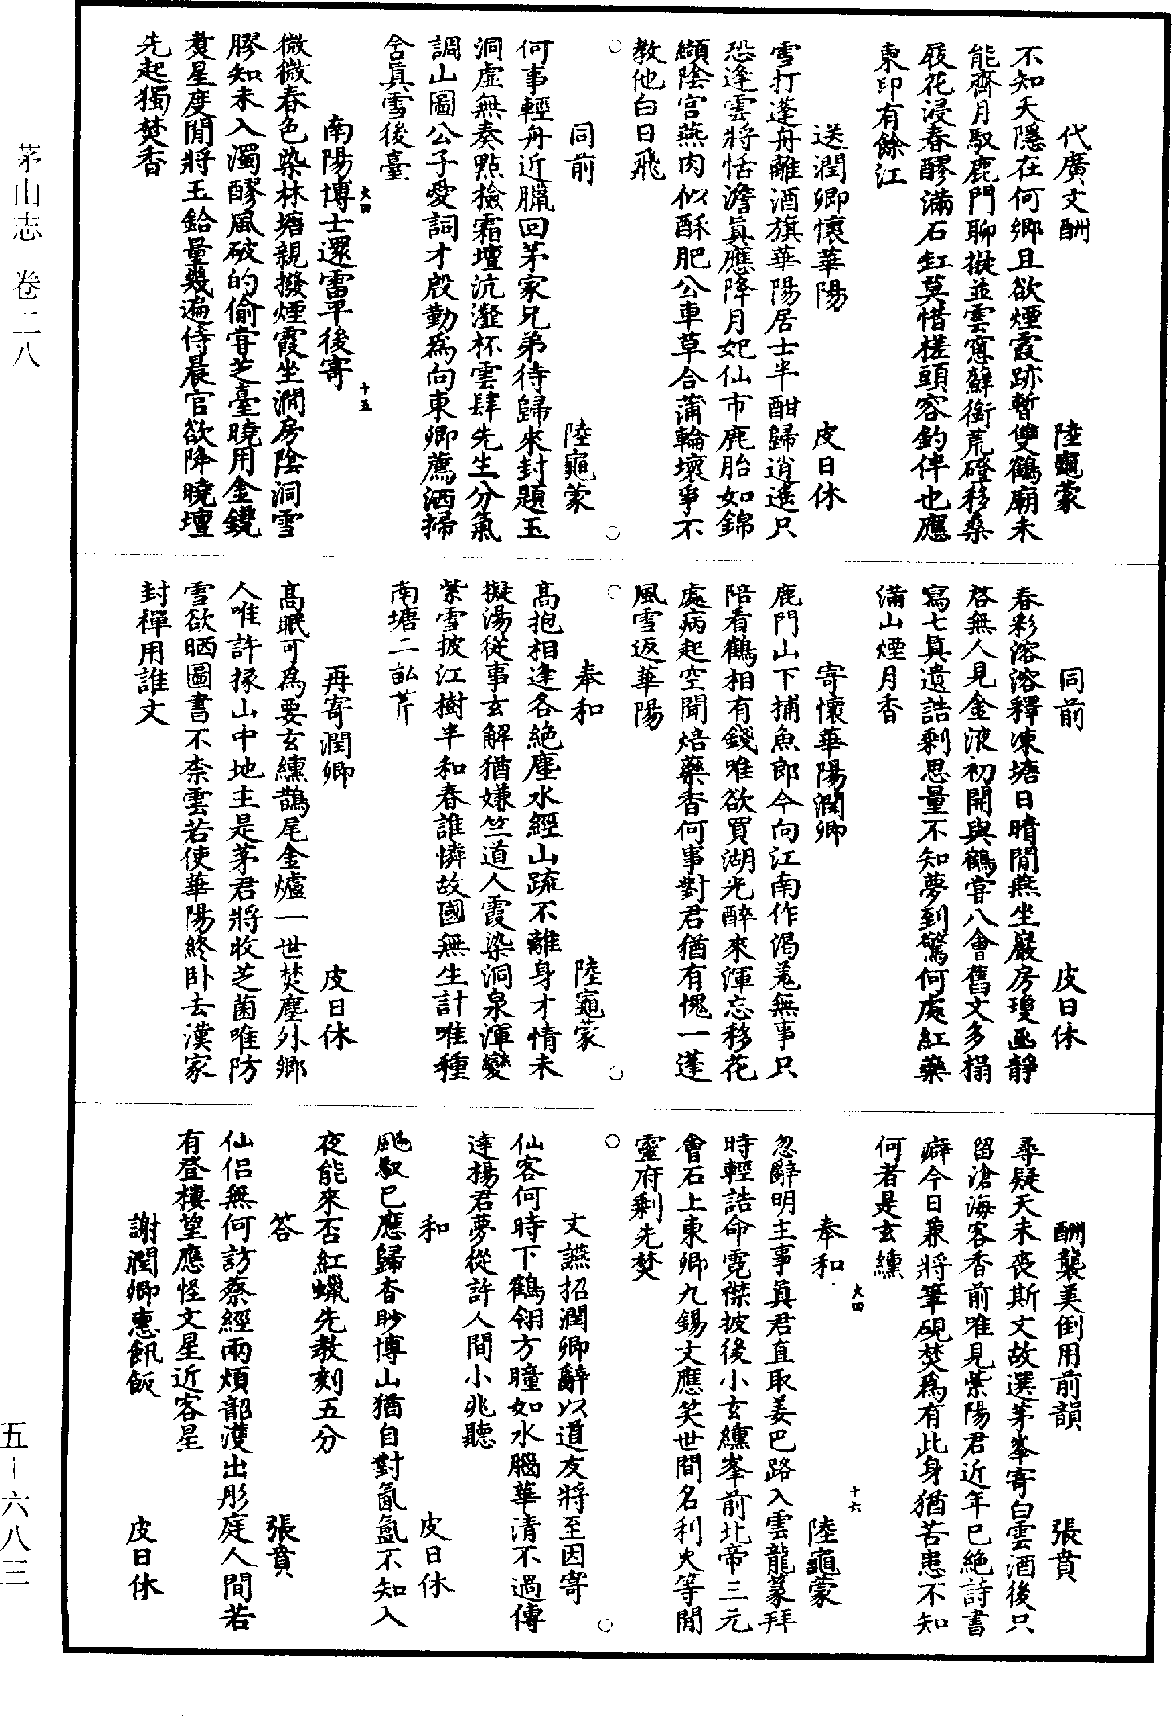 茅山志　卷二八
五－六八三
代廣文酬　陸龜蒙
不知天隱在何鄉且欲煙霞跡暫雙鶴廟未
能齊月馭鹿門聊擬並雲窻蘚銜荒磴移桑
屐花浸春醪滿石缸莫惜槎頭容釣伴也應
東印有餘江
送潤卿懷華陽　皮日休
雪打蓬舟離酒旗華陽居士半酣歸逍遙只
恐逢雲將恬澹真應降月妃仙市鹿胎如錦
纈陰宫燕肉似酥肥公車草合蒲輪壞爭不
教他白日飛
同前　陸龜蒙
何事輕舟近臘回茅家兄弟待歸來封題玉
洞虛無奏點檢霜壇沆瀣杯雲肆先生分氣
調山圖公子愛詞才殷勤爲向東卿薦洒掃
含眞雪後臺
南陽博士還雷平後寄
大四
十五
微微春色染林塘親撥煙霞坐澗房陰洞雪
膠知未入濁醪風破的偷甞芝臺曉用金鐺
煑星度閒將玉鉿量幾遍侍晨官欲降曉壇
先起獨焚香
同前　皮日休
春彩溶溶釋凍塘日晴閒燕坐巖房瓊凾靜
啓無人見金液初開與鶴甞八會舊文多搨
寫七真遺誥剩思量不知夢到驚何處紅藥
滿山煙月香
寄懷華陽潤卿
鹿門山下捕魚郎今向江南作渴羌無事只
陪看鶴相有錢唯欲買湖光醉來渾忘移花
處病起空聞焙藥香何事對君猶有愧一蓬
風雪返華陽
奉和　陸龜蒙
高抱相逢各絶塵水經山疏不離身才情未
擬湯從事玄解猶嫌竺道人霞染洞泉渾變
紫雪披江樹半和春誰憐故國無生計唯種
南塘二畆芹
再寄潤卿　皮日休
高眠可為要玄纁鵲尾金爐一世焚塵外鄉
人唯許掾山中地主是茅君將收芝菌唯防
雪欲晒圖書不柰雲若使華陽終卧去漢家
封禪用誰文
酬襲美倒用前韻　張賁
尋疑天未喪斯文故選茅峯寄白雲酒後只
留滄海客香前唯見紫陽君近年已絶詩書
癖今日兼將筆硯焚爲有此身猶苦患不知
何者是玄纁
奉和　陸龜蒙
大四
十六
忽辭明主事真君直取姜巴路入雲龍篆拜
時輕誥命霓襟披後小玄纁峯前北帝三元
會石上東卿九錫文應笑世間名利火等閒
靈府剩先焚
文讌招潤卿辭以道友將至因寄
仙客何時下鶴翎方瞳如水腦華清不過傳
達揚君夢從許人間小兆聽
和　皮日休
飇馭已應歸杳眇博山猶自對氤氳不知入
夜能來否紅蠟先教刻五分
答　張賁
仙侣無何訪蔡經兩煩韶濩出彤庭人間若
有登樓望應怪文星近客星
謝潤卿惠䬪飯　皮日休